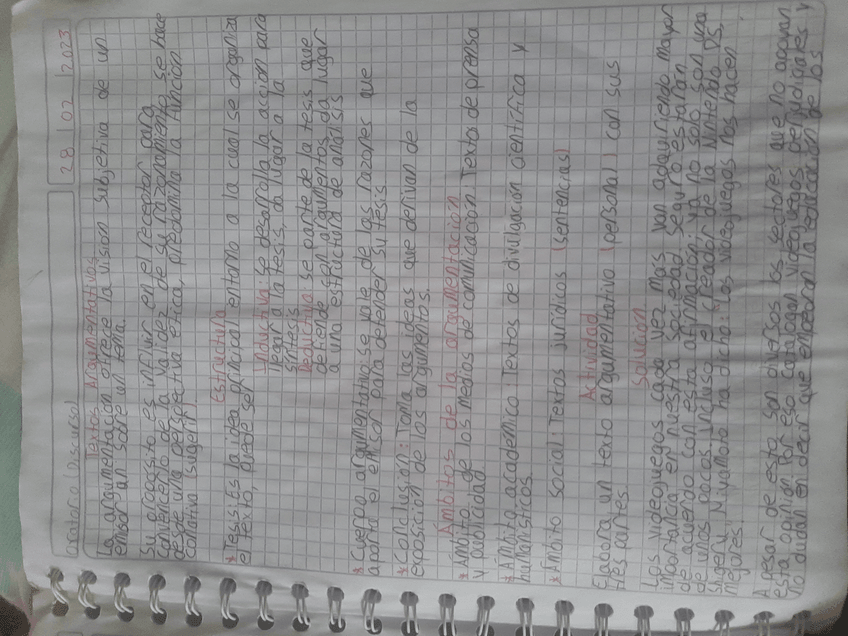 (oratoria(discurso) 28 02 2023
Textos Argumentativos
La argumentación ofrece la visión subjetiva de un
emisor an sobre un tema.
Su propósito es influir en el receptor para
convencerlo de la validez de su razonamiento, se hace
desde una perspectiva ética, predomina la función
conativa (sugerir)
Estructura
*Tesis: Es la idea principal entorno a la cual se organiza
el texto, puede ser
Inductiva: se desarrolla la acción para
llegar a la tesis, da lugar a la
síntesis
Deductiva: se parte de la tesis que
defiende sen argumentos da lugar
a una estructura de análisis
*Cuerpo argumentativo: se vale de las razones que
aporta el emisor para defender su tesis
*Conclusión: Toma las ideas que derivan de la
exposición de los argumentos.
Ámbitos de la argumentación
*Ámbito de los medios de comunicación: Textos de prensa
y publicidad
*Ámbito académico: Textos de divulgación científica y
humanísticos
*Ámbito social: Textos jurídicos (sentencias)
Actividad
Elabora un texto argumentativo (personal) con sus
tres partes.
Solución
Los videojuegos cada vez más van adquiriendo mayor
importancia en nuestra sociedad seguro estarían
de acuerdo con esta afirmación: ya no solo son cosa
de unos pocos, incluso el creador de la Nintendo DS,
Miyamoto ha dicho: Los videojuegos nos hacen
mejores.
A pesar de esto son diversos los sectores que no apoyan
esta opinión Por eso catalogan videojuegos perjudiciales y
no dudan en decir que empeoran la educación de los